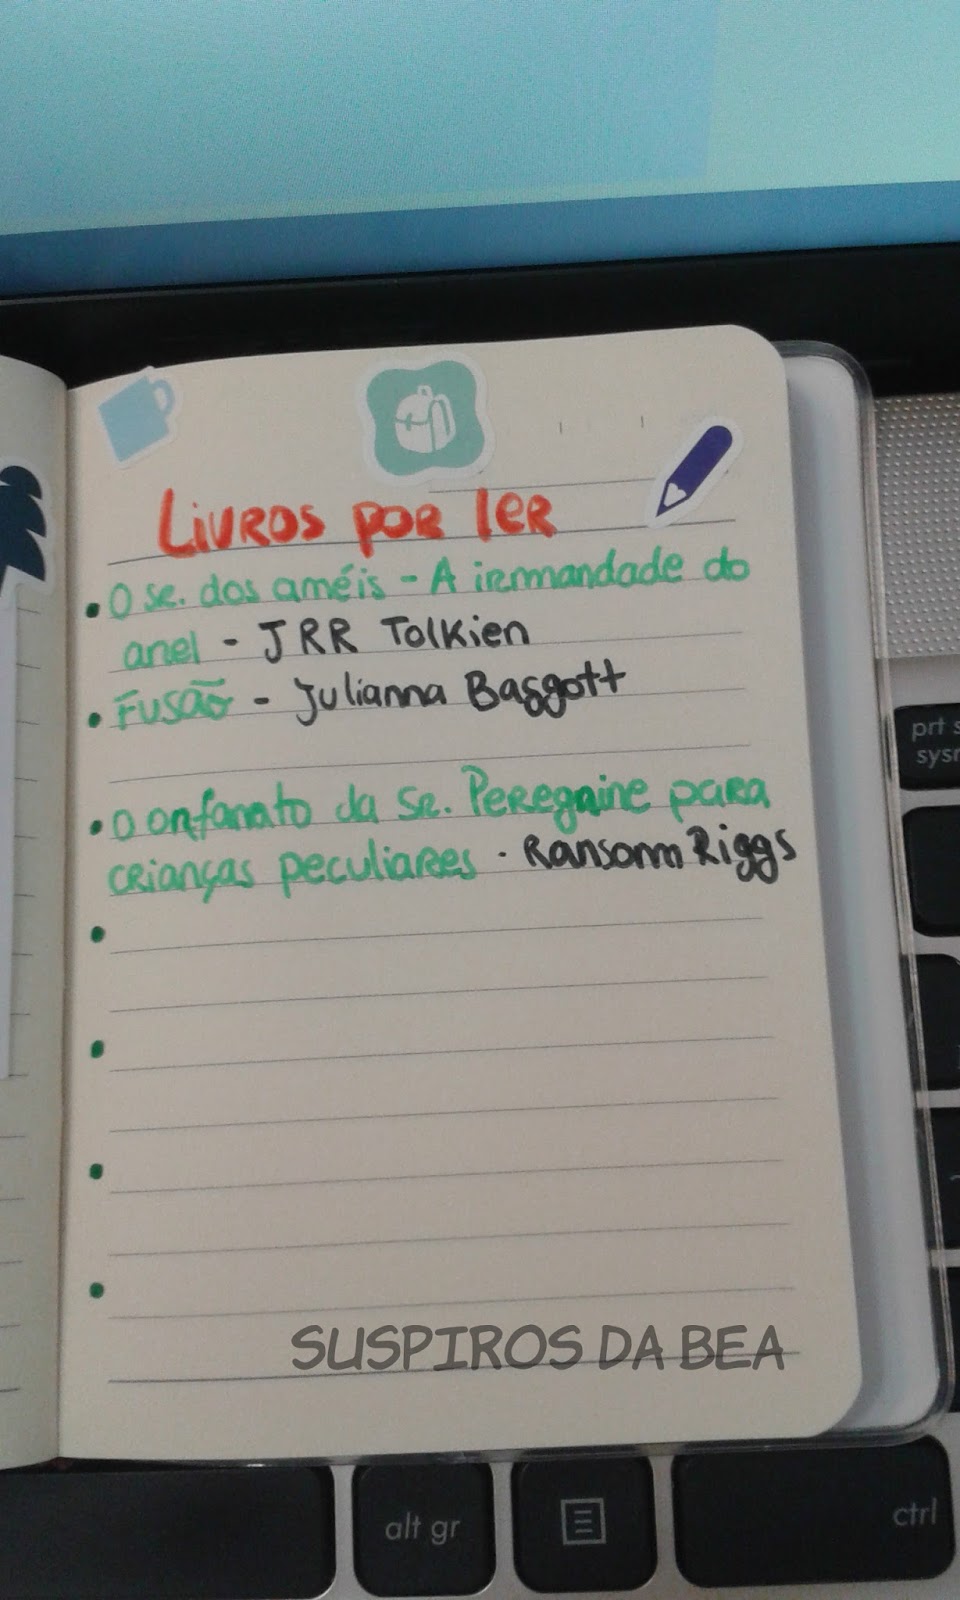 Livros por ler
• O sr. dos anéis - A irmandade do
anel - JRR Tolkien
• Fusão - Julianna Baggott
• O orfanato da Sr. Peregrine para
crianças peculiares - Ransom Riggs
SUSPIROS DA BEA
prt s
sysr
alt gr
ctrl